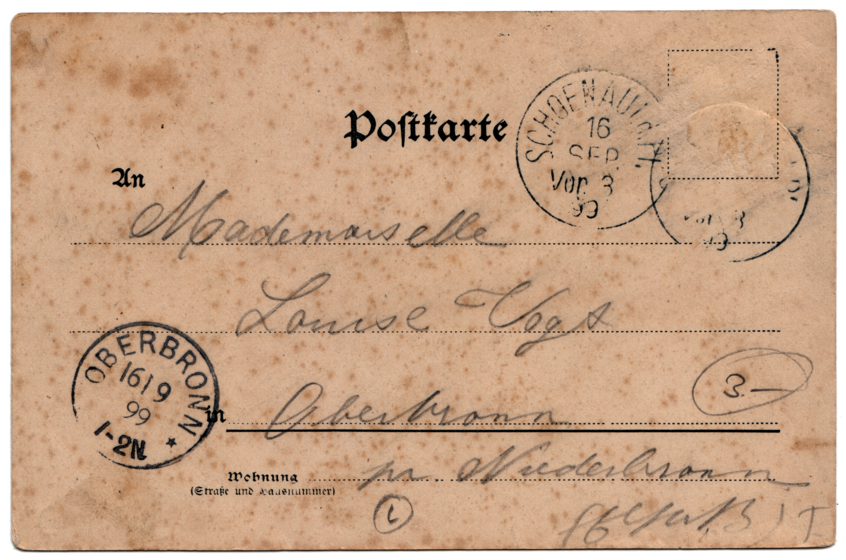 Postkarte
SCHOENAU i. Pf.
16
SEP.
Vor. 8
99
Vor. 8
99
An
Mademoiselle
Louise Vogt
OBERBRONN
16/9
99
1-2N *
3—
in Oberbronn
Wohnung
(Straße und Hausnummer)
pr Niederbronn
L